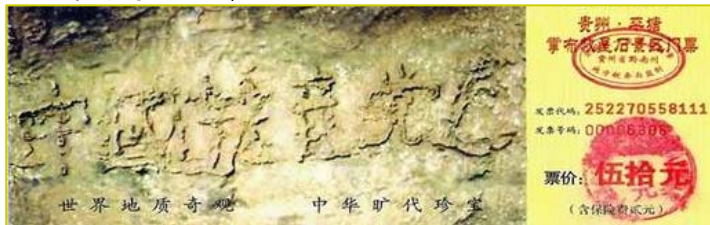 中国共产党亡
世界地质奇观 中华旷代珍宝
贵州·平塘
掌布救星石景区门票
贵州省黔南州
发票代码: 252270558111
发票号码:
票价: 伍拾元
(含保险费贰元)